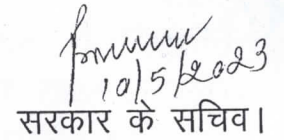 10/5/2023
सरकार के सचिव।